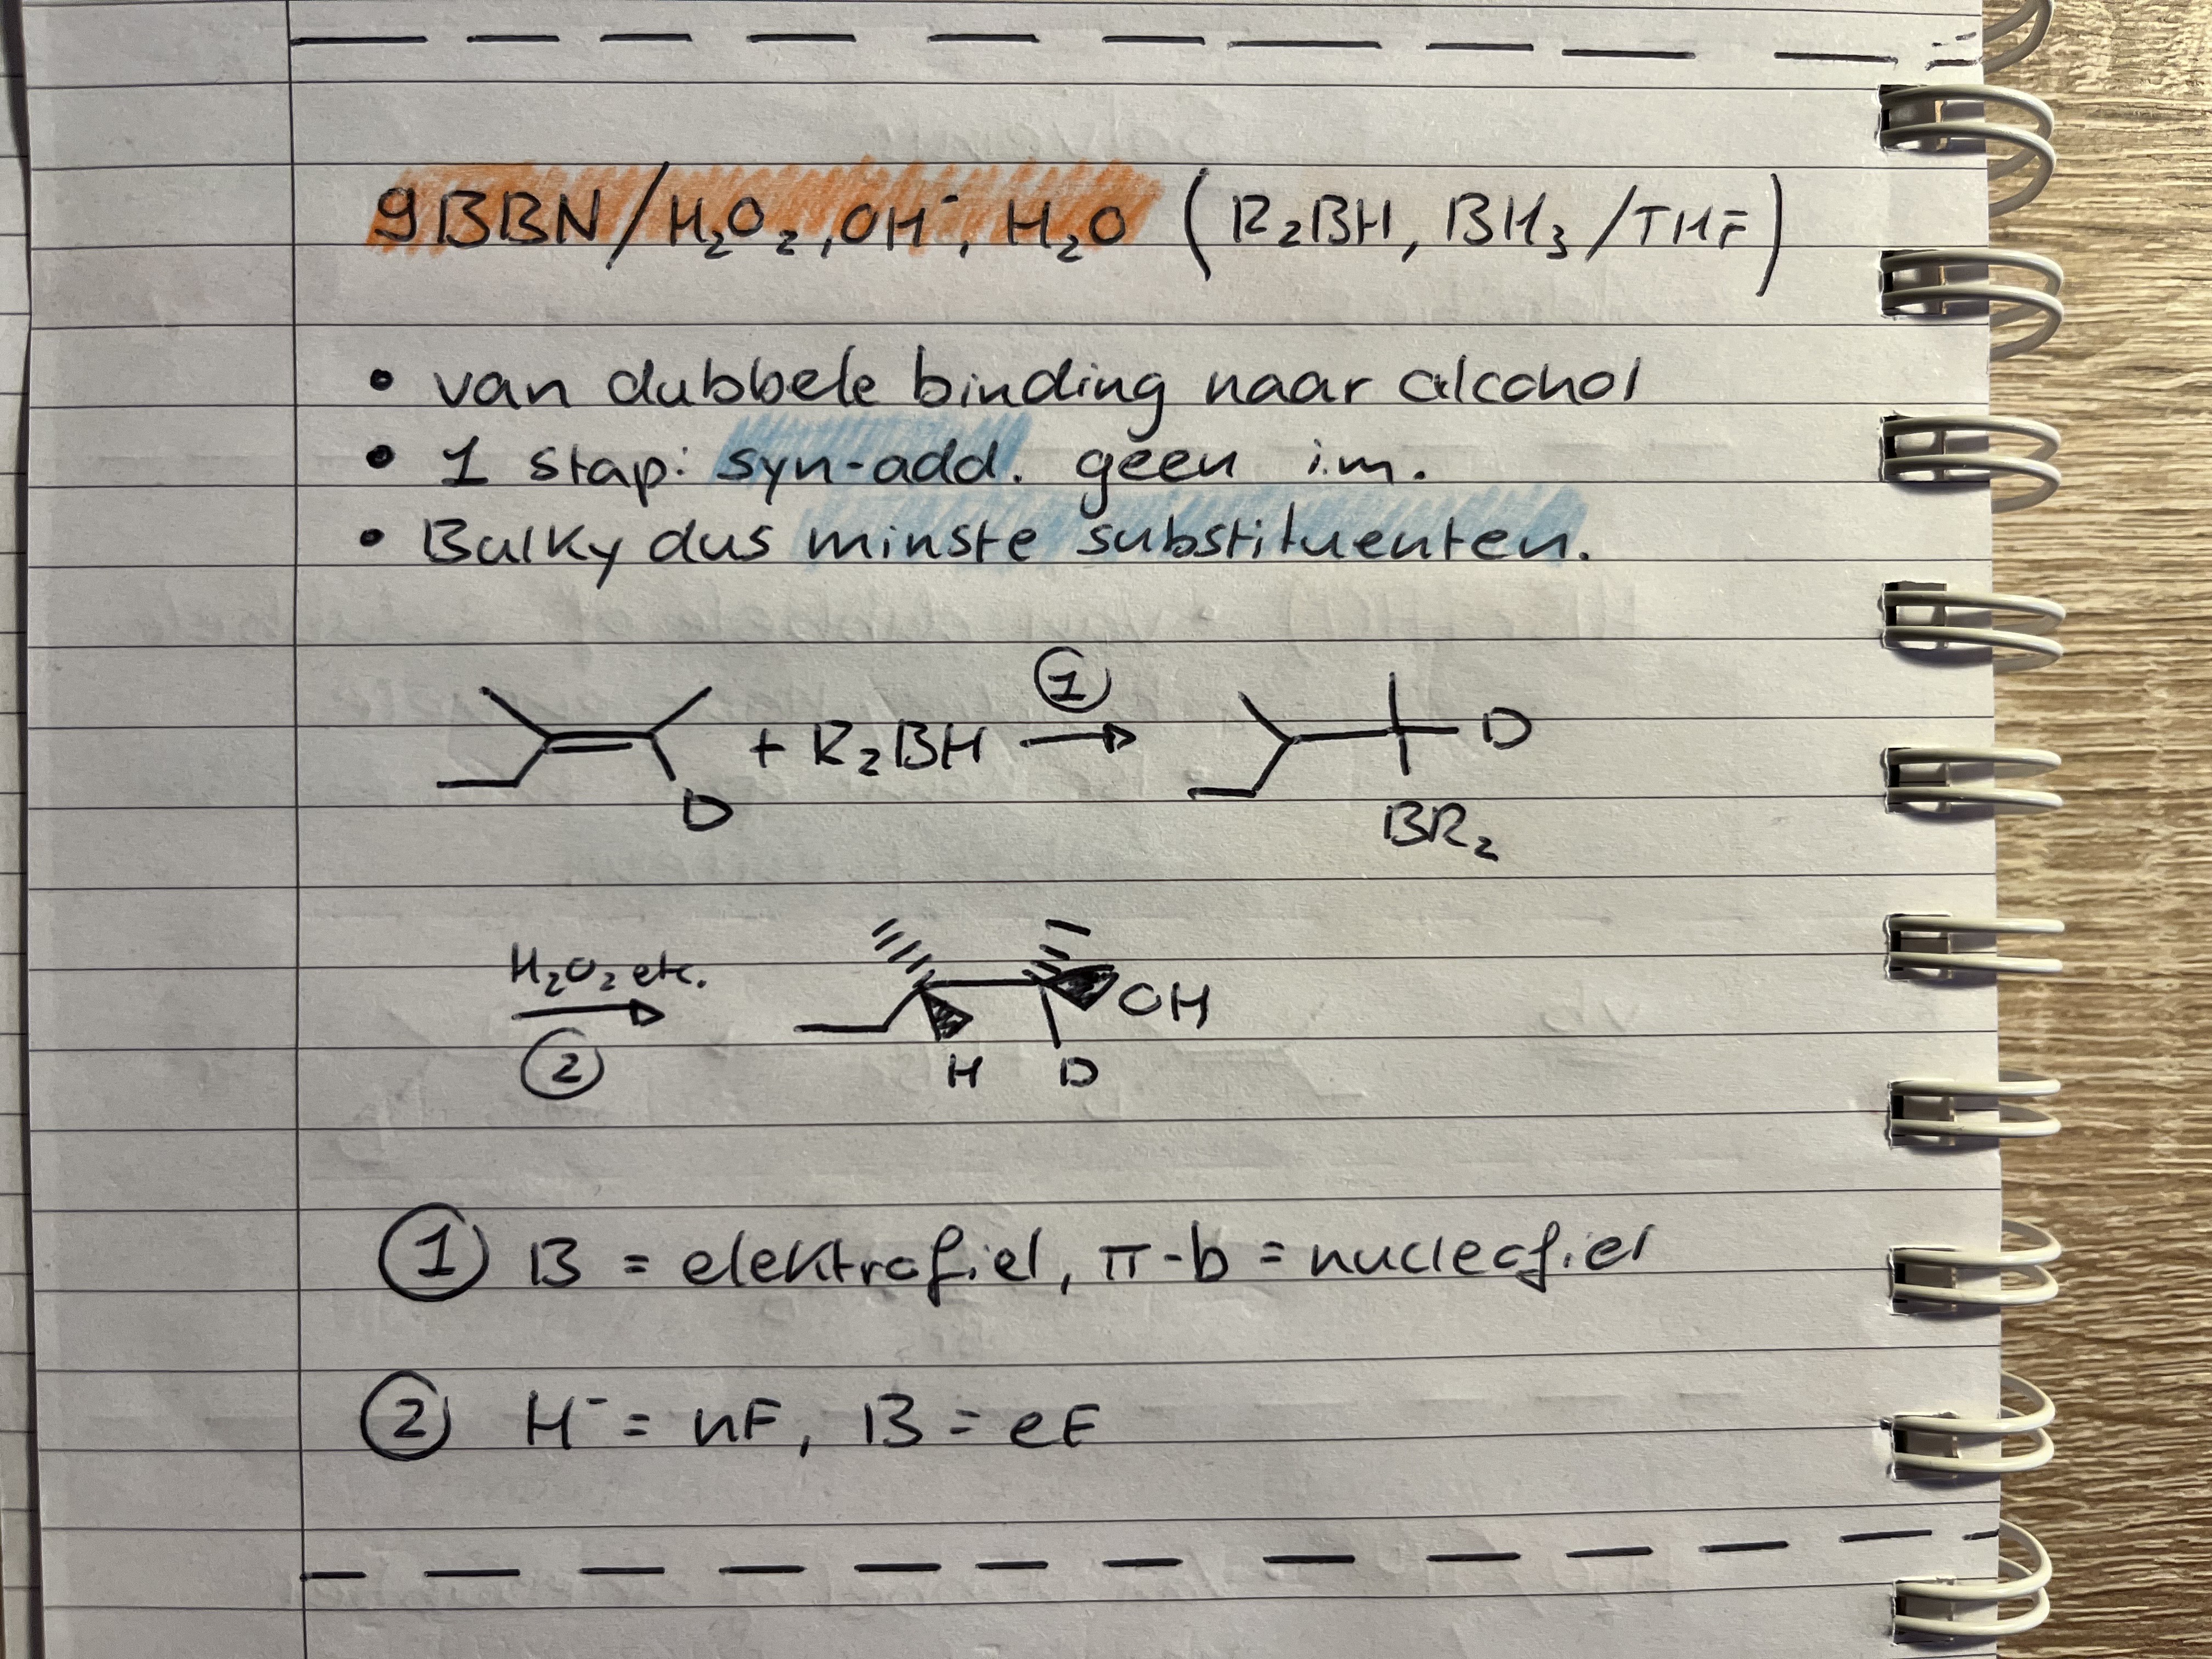 9BBN/H₂O₂, OH⁻, H₂O (R₂BH, BH₃/THF)
• van dubbele binding naar alcohol
• 1 stap: syn-add. geen i.m.
• Bulky dus minste substituenten.
1
+ R₂BH
D
D
BR₂
H₂O₂ etc.
2
OH
H D
1 B = elektrofiel, π-b = nucleofiel
2 H⁻ = nF, B = eF